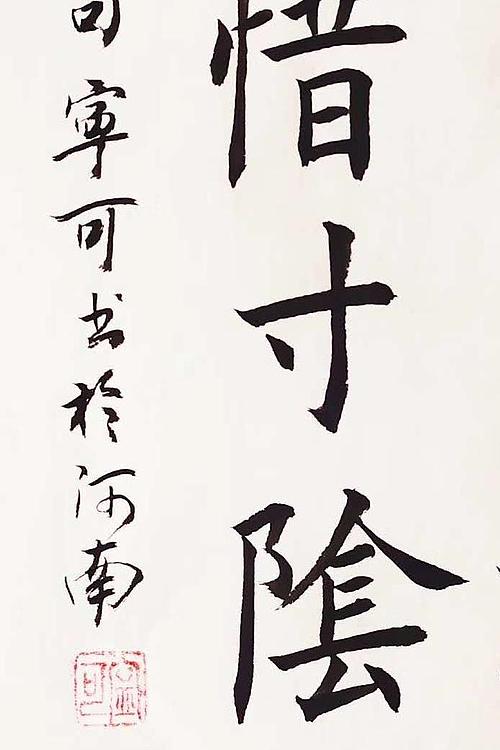 惜寸陰
句寧可书於河南